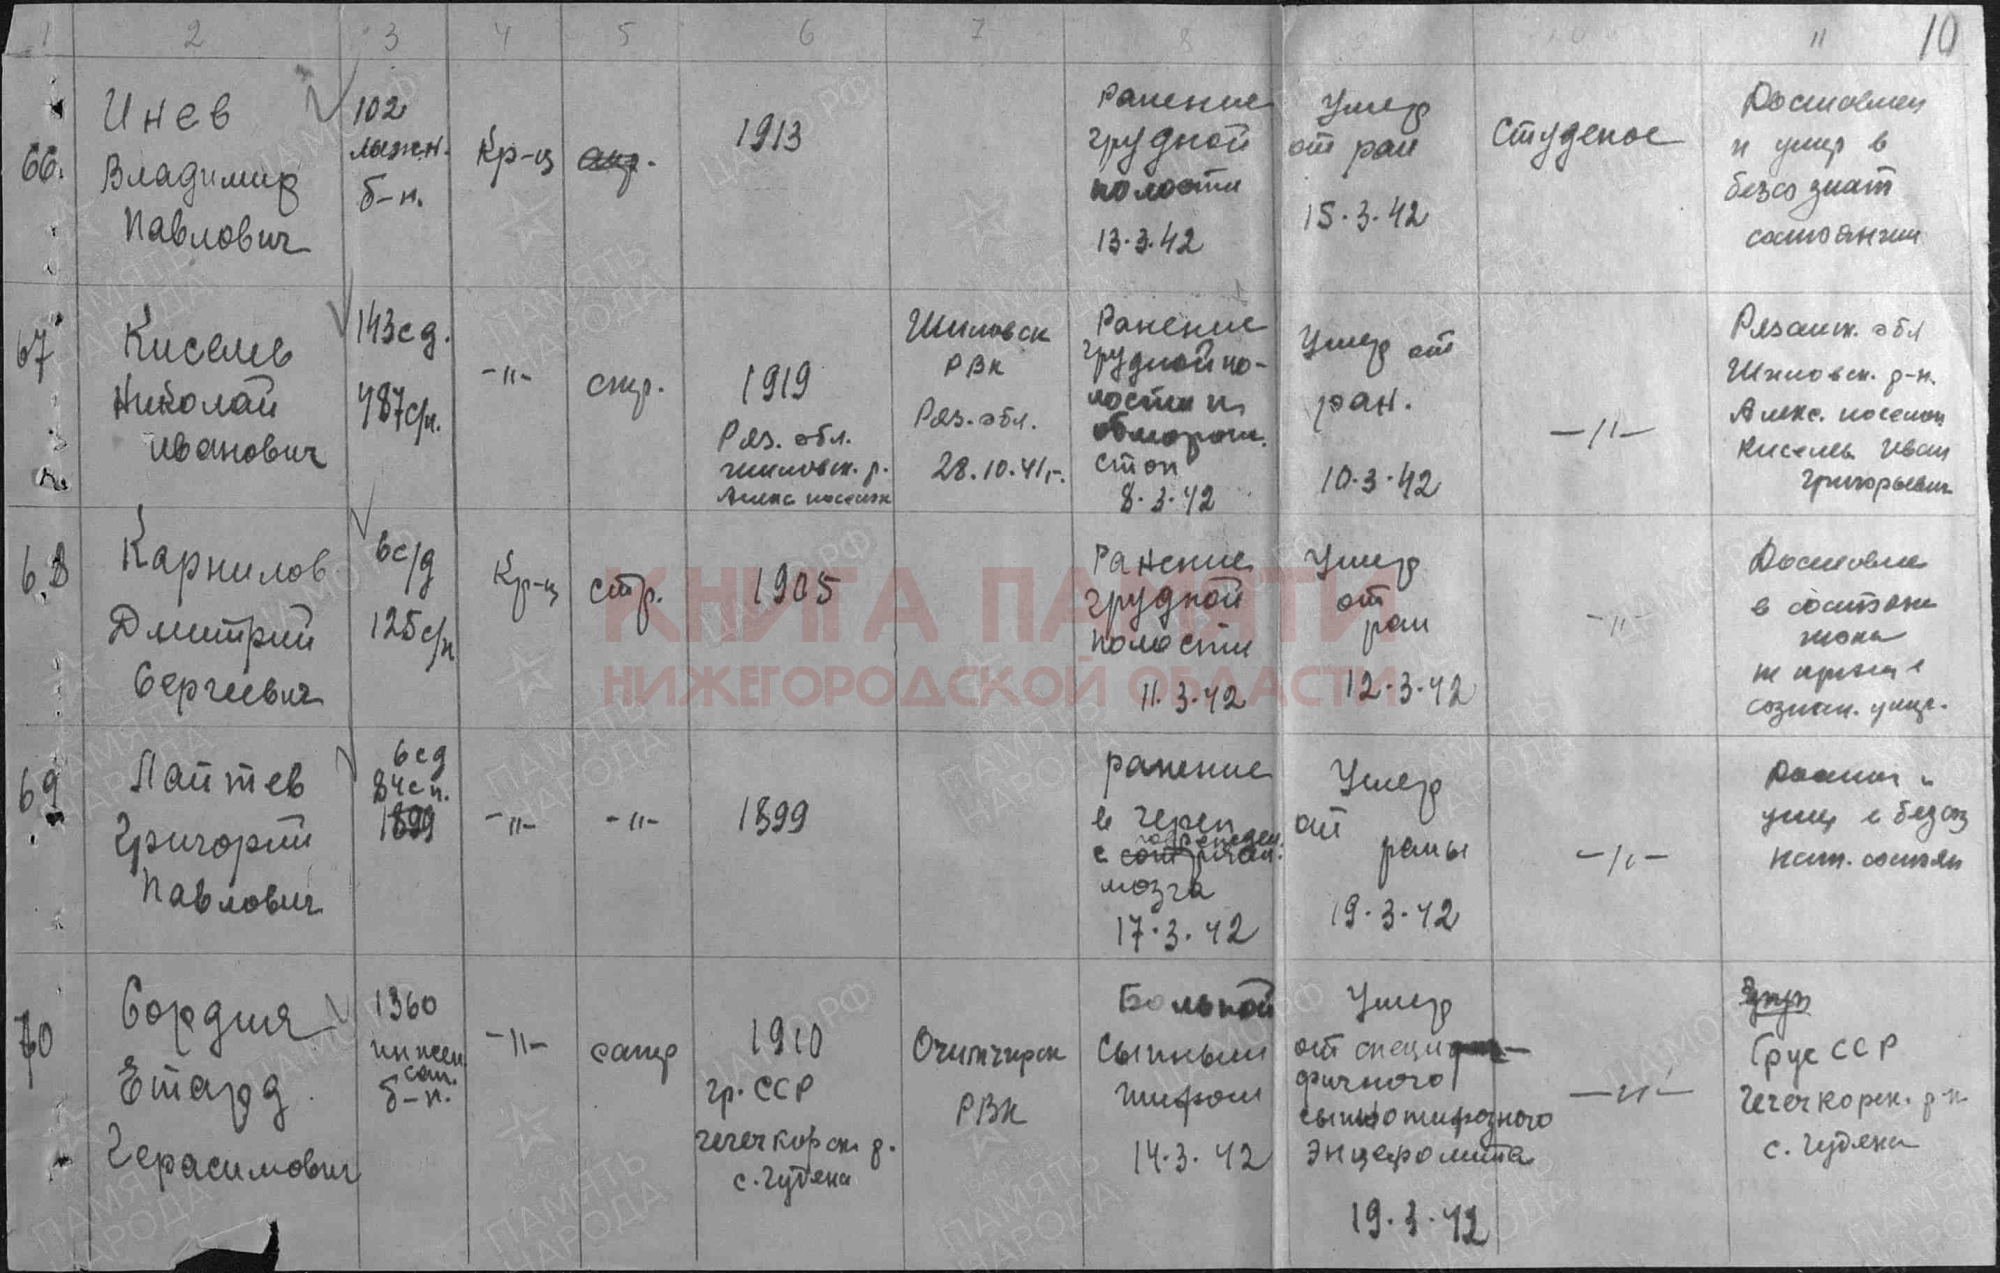 1 2 3 4 5 6 7 8 9 10 11 10
66.
Инев
Владимир
Павлович
102
лыжн.
б-н.
Кр-ц
1913
Ранение
грудной
полости
13.3.42
Умер
от ран
15.3.42
Студеное
Доставлен
и умер в
безсознат
состоянии
67
Киселев
Николай
Иванович
143сд.
487с/п.
-"-
стр.
1919
Ряз. обл.
шиловск. р.
Алекс поселок
Шиловск
РВК
Ряз. обл.
28.10.41г.
Ранение
грудной по-
лости и
обморож.
стоп
8.3.42
Умер от
ран.
10.3.42
-"-
Рязанск. обл
Шиловск. р-н.
Алекс. поселок
Киселев Иван
Григорьевич
68
Карнилов
Дмитрий
Сергеевич
6с/д
125с/п
Кр-ц
стр.
1905
Ранение
грудной
полости
11.3.42
Умер
от
ран
12.3.42
-"-
Доставлен
в состоян
шока
не приходя
сознан. умер.
69
Лаптев
Григорий
Павлович
6сд
84сп.
1899
-"-
-"-
1899
ранение
в череп
с
мозга
17.3.42
Умер
от
раны
19.3.42
-"-
умер в безсоз
нат. состоян
70
Сордия
Етард
Герасимович
1360
инжен
сап.
б-н.
-"-
сапер
1910
гр. ССР
гегечкорск р.
с. Гудяни
Очимчирск
РВК
Больной
Сыпным
тифом
14.3.42
Умер
от специ
фичного
сыпнотифозного
энцефолита
19.3.42
-"-
Груз ССР
Гегечкорск. р-н
с. Гудяни
КНИГА ПАМЯТИ
НИЖЕГОРОДСКОЙ ОБЛАСТИ